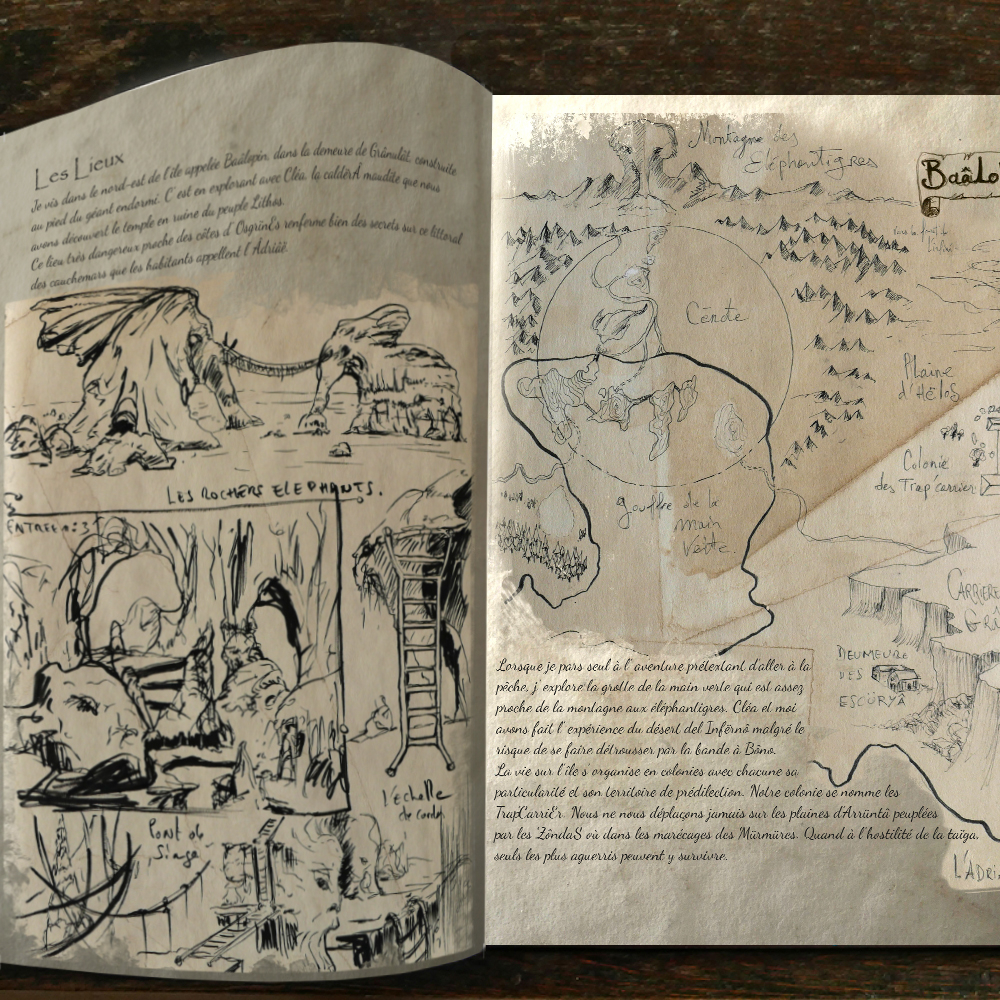 Les Lieux
Je vis dans le nord-est de l'île appelée Baâlopin, dans la demeure de Grânulât, construite
au pied du géant endormi. C'est en explorant avec Cléa, la caldérÄ maudite que nous
avons découvert le temple en ruine du peuple Lithos.
Ce lieu très dangereux proche des côtes d'OsgrinEs renferme bien des secrets sur ce littoral
des cauchemars que les habitants appellent l'Adriäë.
LES ROCHERS ELEPHANTS.
ENTREE n°3
l'échelle
de corde
Pont de
Singe
Montagne des
Elephantigres
Baâlo
Cénote
Plaine
d'Hélos
Colonie
des Trap'carrier
gouffre de la
main
Verte.
CARRIERE
GRA
DEUMEURE
DES
ESCÜRYÄ
Lorsque je pars seul à l'aventure prétextant d'aller à la
pêche, j'explore la grotte de la main verte qui est assez
proche de la montagne aux éléphantigres. Cléa et moi
avons fait l'expérience du désert del Infërnö malgré le
risque de se faire détrousser par la bande à Bâno.
La vie sur l'île s'organise en colonies avec chacune sa
particularité et son territoire de prédilection. Notre colonie se nomme les
TrapCarriEr. Nous ne nous déplaçons jamais sur les plaines d'Arrüntä peuplées
par les ZöndaS où dans les marécages des Mürmüres. Quand à l'hostilité de la taïga,
seuls les plus aguerris peuvent y survivre.
L'ADRI